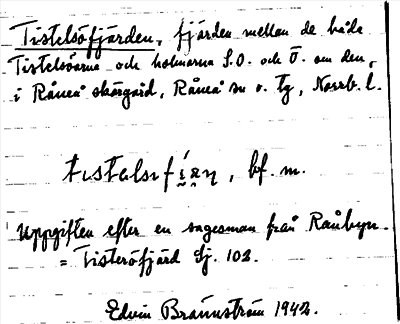 Tistelsöfjärden, fjärden mellan de båda
Tistelsöarna och holmarna S.O. och Ö. om den,
i Råneå skärgård, Råneå sn o. tg, Norrb. l.
bf. m.
Uppgiften efter en sagesman från Rånbyn.
= Tisteröfjärd Sj. 102.
Edvin Brännström 1942.